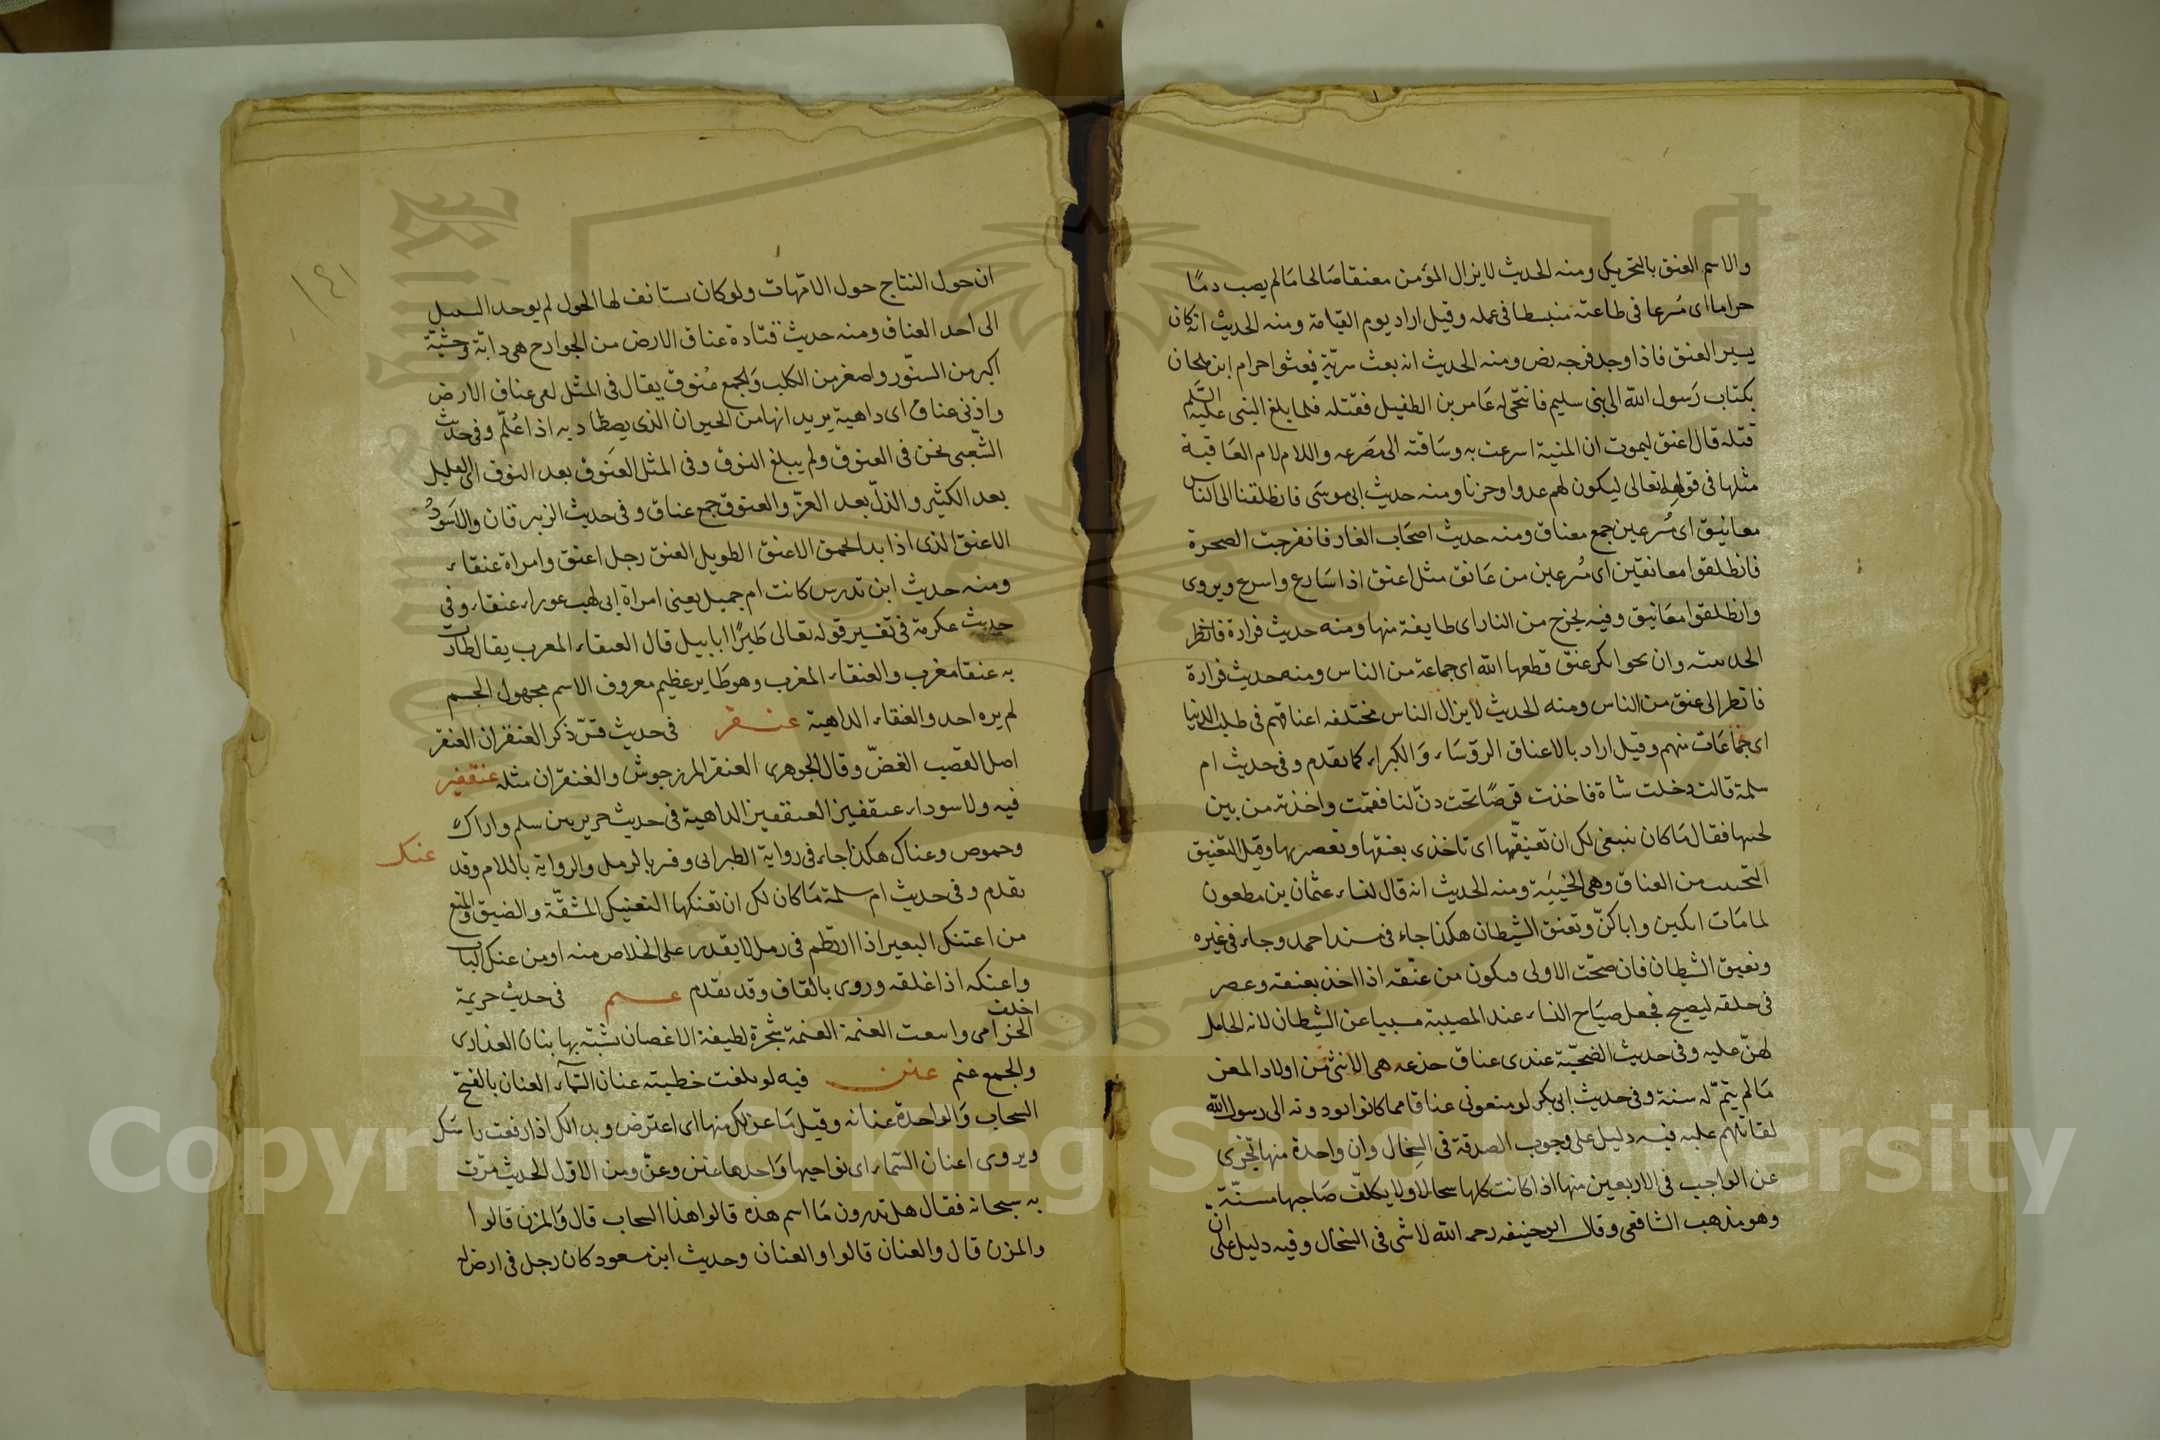 والاسم العنق بالتحريك ومنه الحديث لا يزال المؤمن معنقا صالحا مالم يصب دمًا
حراما اى مسرعا فى طاعته منبسطا فى عمله وقيل اراد يوم القيامة ومنه الحديث انه كان
يسير العنق فاذا وجد فرجه نص ومنه الحديث انه بعث سريّة فبعثوا حرام ابن ملحان
بكتاب رسول الله الى بنى سليم فانتحى له عامر بن الطفيل فقتله فلما بلغ النبى عليه السلم
قتله قال اعنق ليموت ان المنية اسرعت به وساقته الى مصرعه واللام لام العاقبة
مثلها فى قوله تعالى ليكون لهم عدوا وحزنا ومنه حديث ابى موسى فانطلقنا الى الناس
معانيق اى مُسرعين جمع معناق ومنه حديث اصحاب الغار فانفرجت الصخرة
فانطلقوا معانقين اى مُسرعين من عانق مثل اعنق اذا سارع واسرع ويروى
وانطلقوا معانيق وفيه يخرج من النار اى طايفة منها ومنه حديث فزارة فانظر
وان نجوا تكن عنق قطعها الله اى جماعة من الناس ومنه حديث فزارة
فانظر الى عنق من الناس ومنه الحديث لا يزال الناس مختلفه اعناقهم فى طلب الدنيا
اى جماعات منهم وقيل اراد بالاعناق الروساء والكبراء كما تقدم وفى حديث ام
سلمة قالت دخلت شاة فاخذت قرصًا تحت دنّ لنا فقمت واخذته من بين
لحييها فقال ما كان ينبغى لكِ ان تعنقيها اى تاخذى بعنقها وتعصريها وقيل التعنيق
التخييب من العناق وهى الخيبة ومنه الحديث انه قال لنساء عثمان بن مظعون
لما مات ابكين واياكنّ وتعنق الشيطان هكذا جاء فى مسند احمد وجاء فى غيره
ونعيق الشيطان فان صحّت الاولى فيكون من عنّقه اذا اخذ بعنقه وعصر
فى حلقه ليصيح فجعل صياح النساء عند المصيبة مسببا عن الشيطان لانه الحامل
لهنّ عليه وفى حديث الضحيّة عندى عناق جذعه هى الانثى من اولاد المعز
مالم يتمّ له سنة وفى حديث ابى بكر لو منعونى عناقا مما كانوا يودونه الى رسول الله
لقاتلتهم عليه فيه دليل على وجوب الصدقة فى السخال وان واحدة منها تجزى
عن الواجب فى الاربعين منها اذا كانت كلها سخالا ولا يكلف صاحبها مسنّة
وهو مذهب الشافعى وقال ابو حنيفه رحمه الله لا شى فى السخال وفيه دليل على انّ
١٤١
ان حول النتاج حول الامّهات ولو كان يستانف لها الحول لم يوجد السبيل
الى اخذ العناق ومنه حديث قتادة عناق الارض من الجوارح هى دابّة وحشيّة
اكبر من السنّور واصغر من الكلب والجمع عُنوق يقال فى المثل لقى عناق الارض
واذنى عناق اى داهية يريد انها من الحيوان الذى يصطاد به اذا عُلّم وفى حديث
الشعبى نحن فى العنوق ولم يبلغ النوق وفى المثل العنوق بعد النوق اى القليل
بعد الكثير والذلّ بعد العزّ والعنوق جمع عناق وفى حديث الزبرقان والاسود
الاعنق الذى اذا بدا يحمق الاعنق الطويل العنق رجل اعنق وامراة عنقاء
ومنه حديث ابن تدرس كانت ام جميل يعنى امراة ابى لهب عوراء عنقاء وفى
حديث عكرمة فى تفسير قوله تعالى طيرًا ابابيل قال العنقاء المغرب يقال طارت
به عنقا مغرب والعنقاء المغرب وهو طاير عظيم معروف الاسم مجهول الجسم
لم يره احد والعنقاء الداهية عنقز فى حديث قسّ ذكر العنقزان العنقز
اصل القصب الغضّ وقال الجوهرى العنقز المرزجوش والعنقزان مثله عنقفير
فيه ولا سوداء عنقفيز العنقفيز الداهية فى حديث جرير بين سلم واراك عنك
وحموض وعناك هكذا جاء فى رواية الطبرانى وفسر بالرمل والرواية باللام وقد
تقدم وفى حديث ام سلمة ما كان لكِ ان تعنكيها التعنيك المشقّة والضيق والمنع
من اعتنك البعير اذا ارتطم فى رمل لا يقدر على الخلاص منه او من عنك الباب
واعنكه اذا اغلقه وروى بالقاف وقد تقدم عنم فى حديث خزيمة
واخلف الخزامى واينعت العنمة العنمة شجرة لطيفة الاغصان يشبّه بها بنان العذارى
والجمع عنم عنن فيه لو بلغت خطيئته عنان السماء العنان بالفتح
السحاب والواحدة عنانه وقيل ما عنّ لك منها اى اعترض وبدا لك اذا رفعت راسك
ويروى اعنان السماء اى نواحيها واحدها عنن وعنّ ومن الاوّل الحديث مرّت
به سحابة فقال هل تدرون ما اسم هذه قالوا هذا السحاب قال والمزن قالوا
والمزن قال والعنان قالوا والعنان وحديث ابن مسعود كان رجل فى ارض له
Copyright © King Saud University
1957